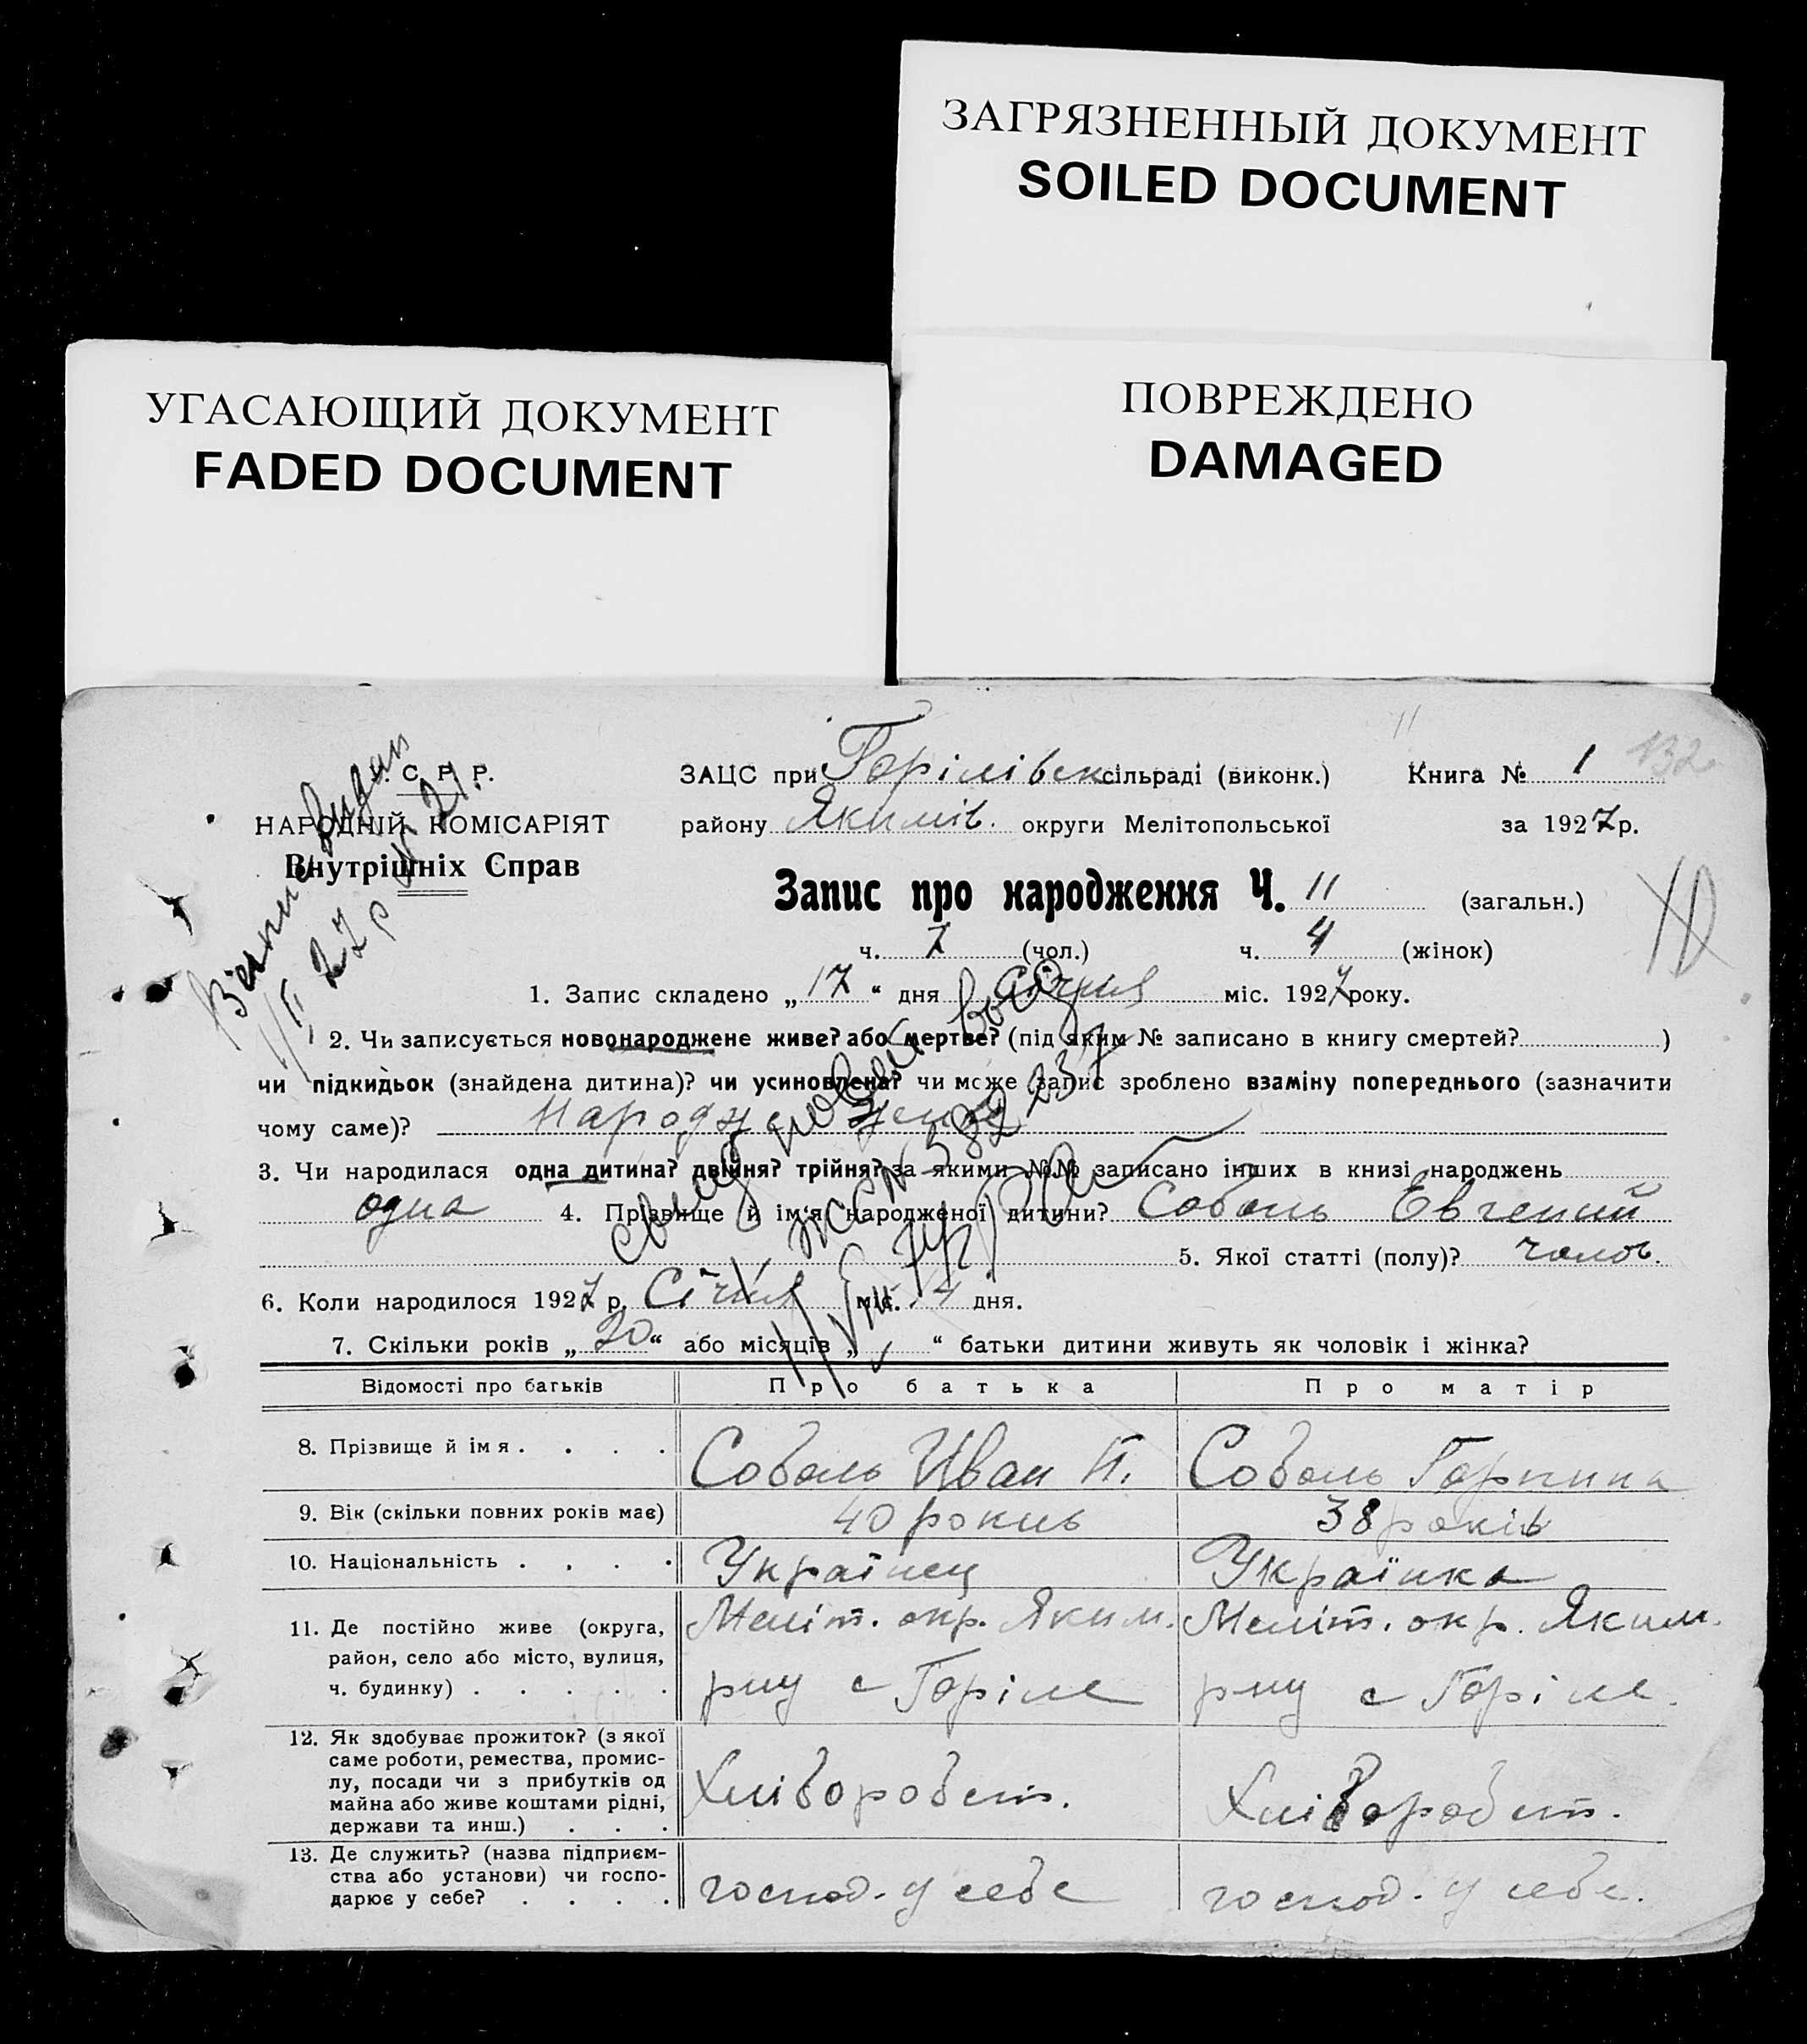 ЗАГРЯЗНЕННЫЙ ДОКУМЕНТ
SOILED DOCUMENT
УГАСАЮЩИЙ ДОКУМЕНТ
FADED DOCUMENT
ПОВРЕЖДЕНО
DAMAGED
11
. С. Р. Р.
НАРОДНІЙ КОМІСАРІЯТ
Внутрішніх Справ
ЗАЦС при Горілівск сільраді (виконк.) Книга № 1 132
району Якимів. округи Мелітопольської за 1927 р.
Запис про народження Ч. 11 (загальн.)
ч. 7 (чол.) ч. 4 (жінок)
1. Запис складено „ 17 “ дня Січня міс. 1927 року.
2. Чи записується новонароджене живе? або мертве? (під яким № записано в книгу смертей? )
чи підкидьок (знайдена дитина)? чи усиновлена? чи може запис зроблено взаміну попереднього (зазначити
чому саме)?
3. Чи народилася одна дитина? двійня? трійня? за якими №№ записано інших в книзі народжень
одна 4. Прізвище й ім'я народженої дитини? Соболь Евгений
5. Якої статті (полу)? чолов.
6. Коли народилося 1927 р. Січня міс. 4 дня.
7. Скільки років „ 20 “ або місяців „ “ батьки дитини живуть як чоловік і жінка?
Відомості про батьків Про батька Про матір
8. Прізвище й ім я . . . . Соболь Иван П. Соболь Горпина
9. Вік (скільки повних років має) 40 рокив 38 років
10. Національність . . . . Українец Українка
11. Де постійно живе (округа, Меліт. окр. Яким. Меліт. окр. Яким.
район, село або місто, вулиця,
ч. будинку) . . . . . рну с Горіле рну с Горіле.
12. Як здобуває прожиток? (з якої
саме роботи, ремества, промис-
лу, посади чи з прибутків од Хліборобст. Хліборобст.
майна або живе коштами рідні,
держави та инш.) . . .
13. Де служить? (назва підприєм-
ства або установи) чи госпо- господ. у себе господ. у себе.
дарює у себе? . . . .